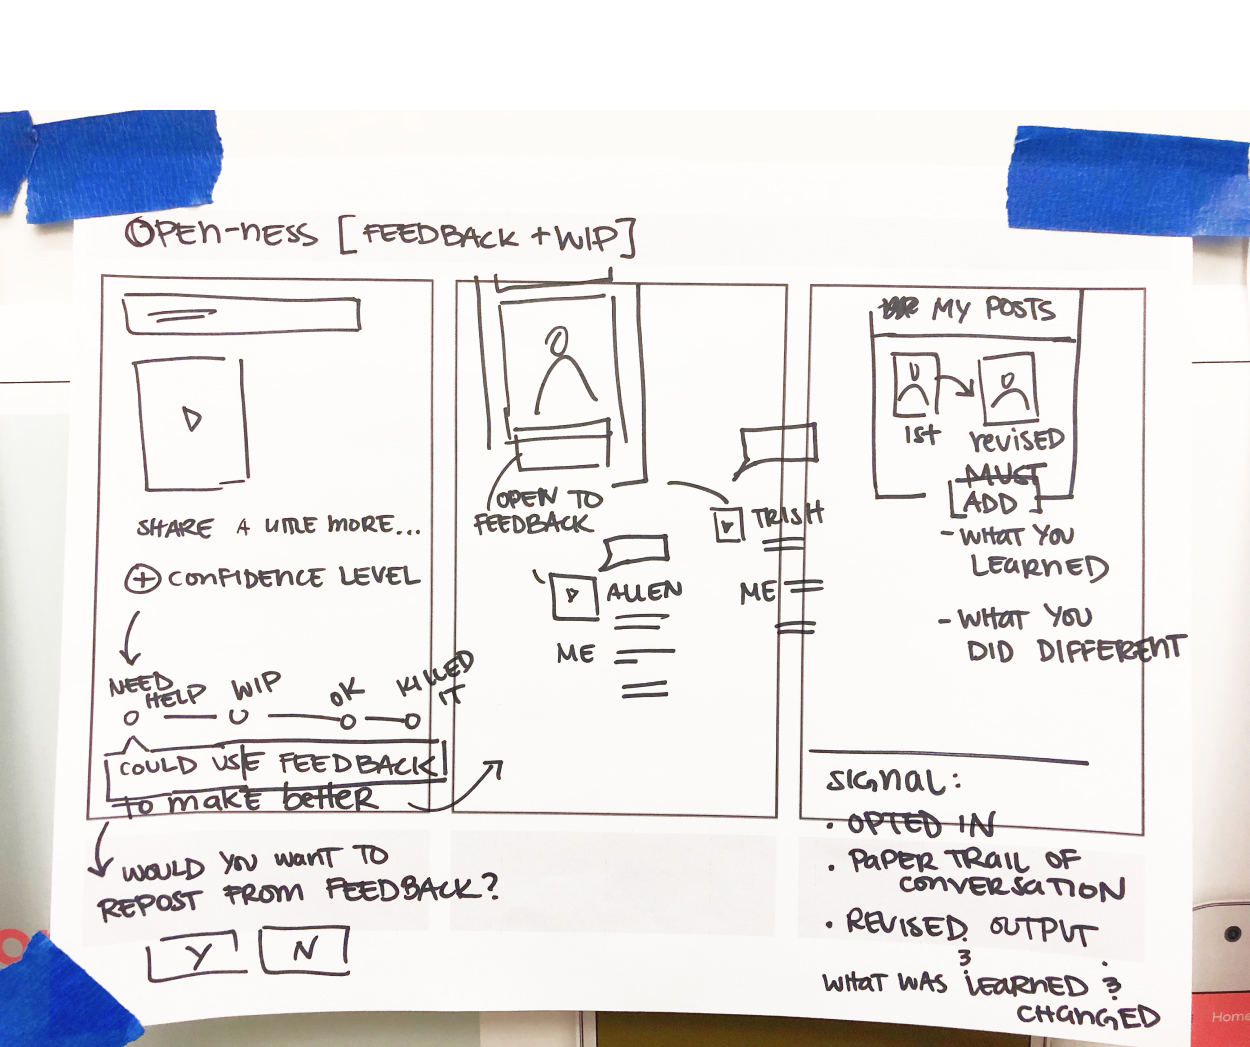 OPEN-NESS [FEEDBACK + WIP]
SHARE A LITTLE MORE...
+ CONFIDENCE LEVEL
NEED HELP
WIP
OK
KILLED IT
COULD USE FEEDBACK
TO MAKE BETTER
WOULD YOU WANT TO
REPOST FROM FEEDBACK?
Y
N
OPEN TO
FEEDBACK
TRISH
ME
ALLEN
ME
MY POSTS
1st
REVISED
MUST
[ADD]
- WHAT YOU
LEARNED
- WHAT YOU
DID DIFFERENT
SIGNAL:
• OPTED IN
• PAPER TRAIL OF
CONVERSATION
• REVISED OUTPUT
&
WHAT WAS LEARNED &
CHANGED
Home